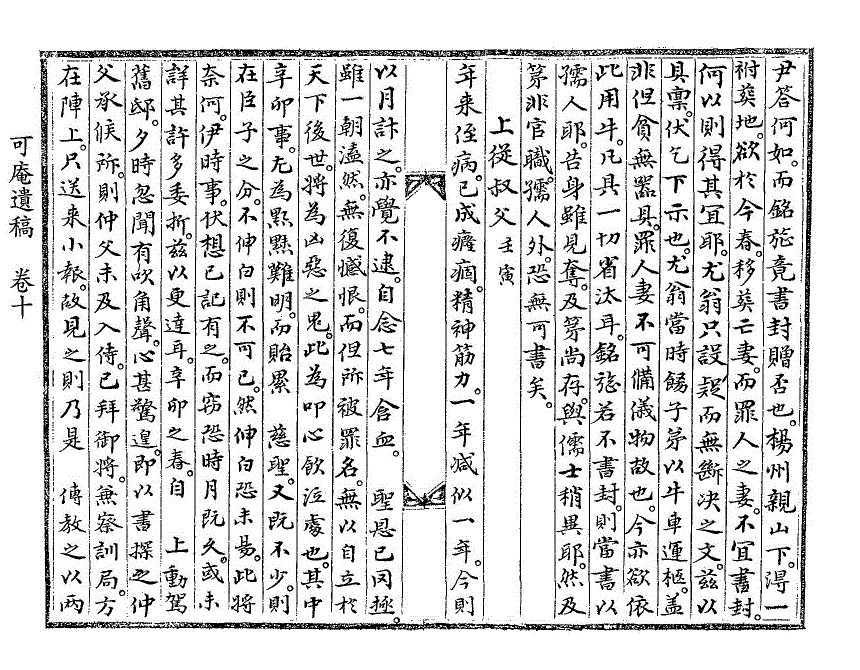 尹答何如。而銘旌竟書封贈否也。楊州親山下。得一
祔葬地。欲於今春。移葬亡妻。而罪人之妻。不宜書封。
何以則得其宜耶。尤翁只設疑而無斷决之文。茲以
具稟。伏乞下示也。尤翁當時飭子弟以牛車運柩。盖
非但貧無器具。罪人妻不可備儀物故也。今亦欲依
此用牛。凡具一切省汰耳。銘旌若不書封。則當書以
孺人耶。吾身雖見奪。及第尚存。與儒士稍異耶。然及
第非官職。孺人外。恐無可書矣。
上從叔父 壬寅
年来侄病。已成癃痼。精神筋力。一年减似一年。今則
以月計之。亦覺不逮。自念七年含血。 聖恩已罔極。
雖一朝溘然。無復憾恨。而但所被罪名。無以自立於
天下後世。將為凶惡之鬼。此為叩心飲泣處也。其中
辛卯事。尤為黯黮難明。而貽累 慈聖。又旣不少。則
在臣子之分。不伸白則不可已。然伸白恐未易。此將
奈何。伊時事。伏想已記有之。而窃恐時月旣久。或未
詳其許多委折。茲以更達耳。辛卯之春。自 上動駕
舊邸。夕時忽聞有吹角聲。心甚驚遑。即以書探之仲
父承候所。則仲父未及入侍。已拜御將。兼察訓局。方
在陣上。只送来小報。故見之則乃是 傳教之以兩
可庵遺稿 卷十